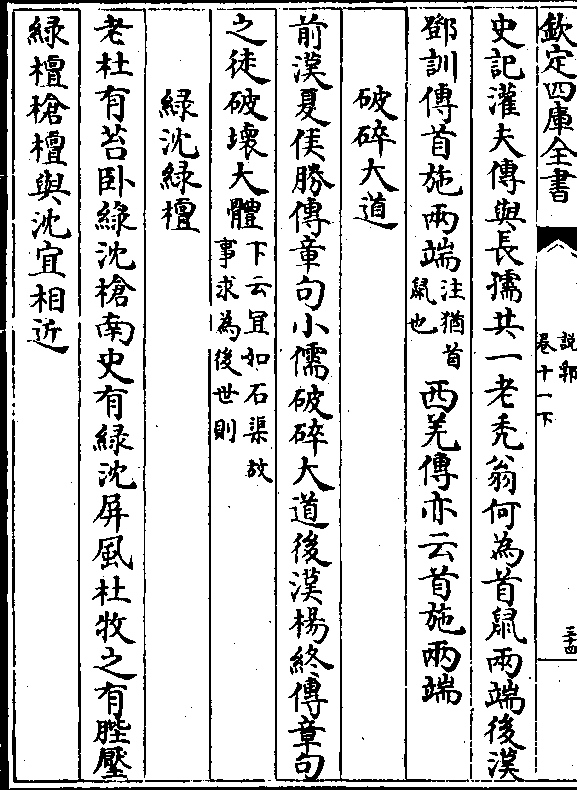 欽定四庫全書
說郛
卷十一下
三十四
史記灌夫傳與長孺共一老禿翁何為首鼠兩端後漢
鄧訓傳首施兩端注猶首鼠也西羌傳亦云首施兩端
破碎大道
前漢夏侯勝傳章句小儒破碎大道後漢楊終傳章句
之徒破壞大體下云宜如石渠故事求為後世則
綠沈綠檀
老杜有苔卧綠沈槍南史有綠沈屏風杜牧之有壓
綠檀槍檀與沈宜相近